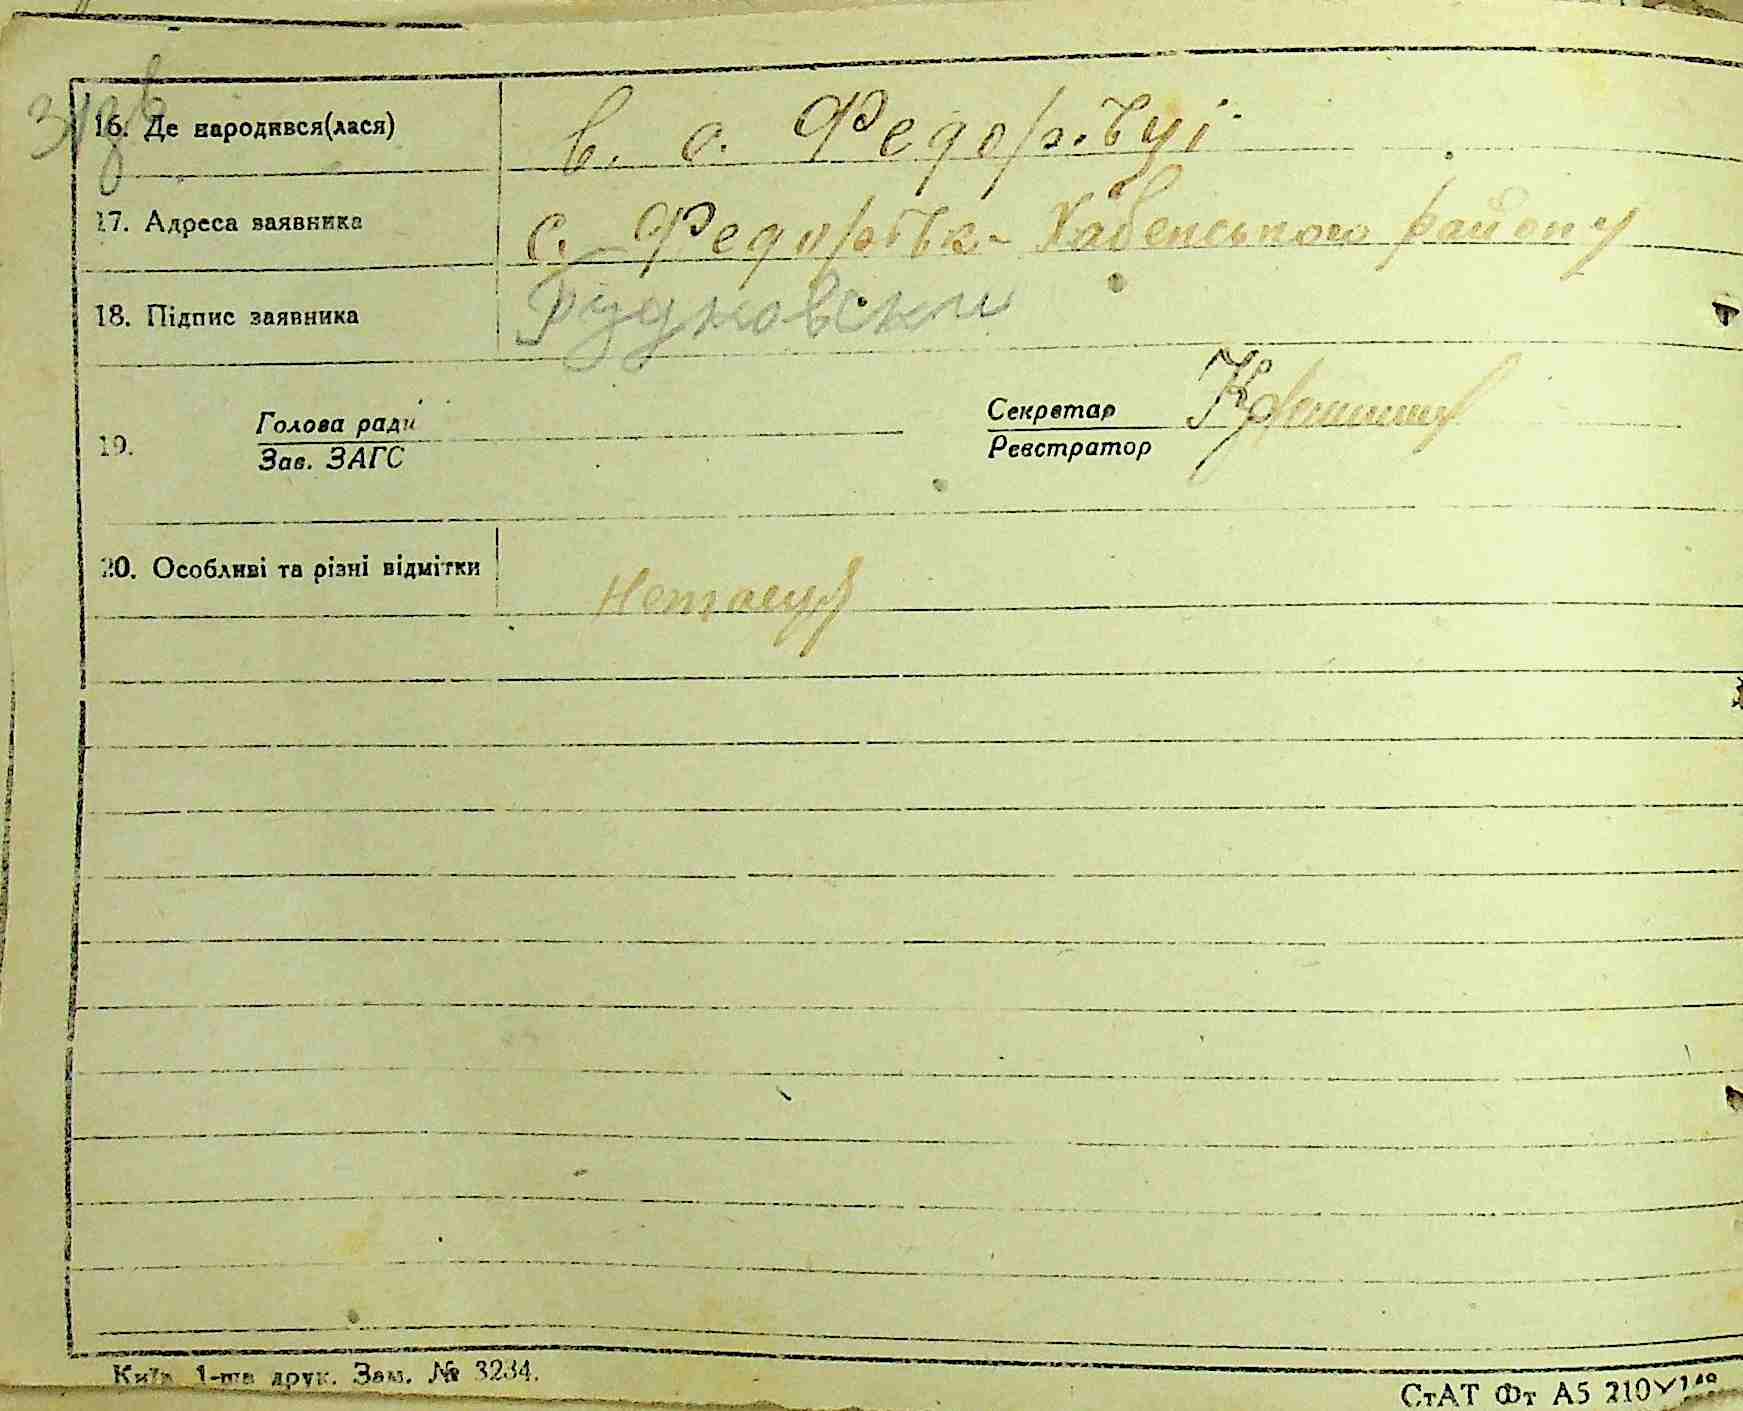 31зв
16. Де народився(лася) в. с. Федорівці
17. Адреса заявника с. Федорівка Хабенського району
18. Підпис заявника Рудковски
Голова ради Секретар
19.
Зав. ЗАГС Реєстратор
20. Особливі та різні відмітки
Київ 1-ша друк. Зам. № 3234.
СтАТ Фт А5 210×148